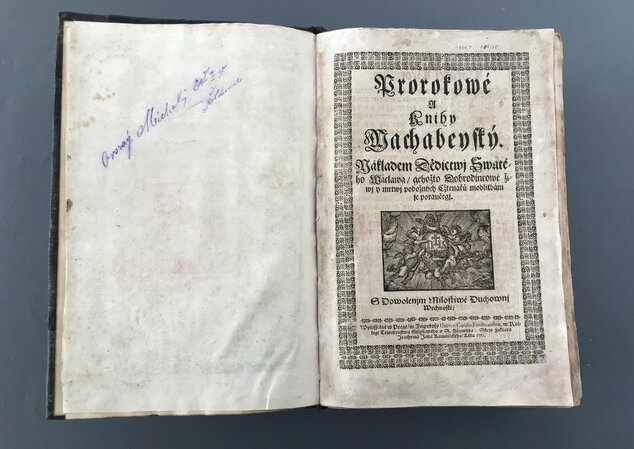 Oravaý Michalj
Prorokowé
A
Knihy
Machabeyský.
Nákladem Dědictwj Swaté-
ho Wácława / gehožto Dobrodincowé ži-
wj y mrtwj pobožných Cztenářů modlitbám
se poraučegj.
S Dowolenjm Milostiwé Duchownj
Wrchnosti /
Wytisštěné w Praze / w Impressý Univer: Carolo-Ferdinandeæ, w Kol-
legi Towaryšstwa Gežjssowého v S. Klimenta
Joachyma Jana Kamenického